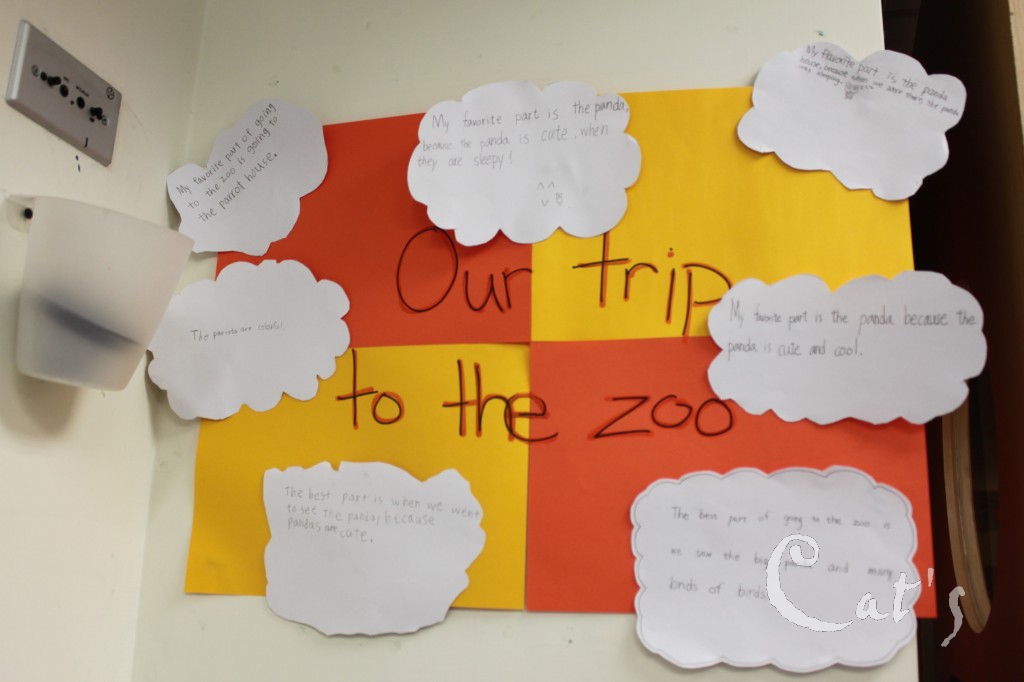 My favorite part is the panda
house, because when we were there the panda
was sleeping.
My favorite part is the panda,
because the panda is cute, when
they are sleepy!
My favorite part of going
to the zoo is going to
the parrot house.
Our trip
to the zoo
The parrots are colorful
My favorite part is the panda because the
panda is cute and cool.
The best part is when we went
to see the panda, because
pandas are cute.
The best part of going to the zoo is
we saw the big and many
kinds of birds
Cat's